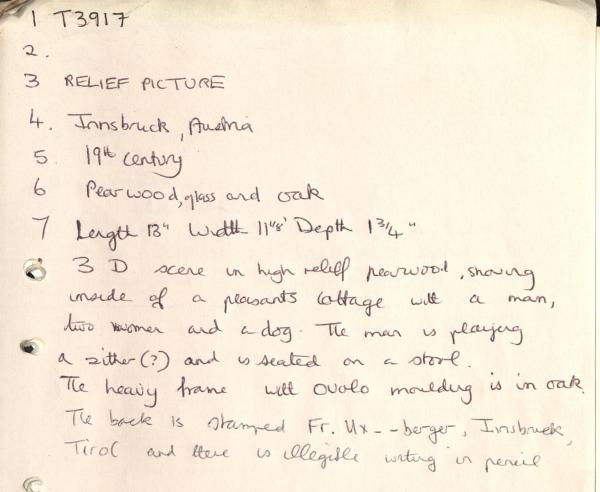 1 T3917
2.
3 RELIEF PICTURE
4. Innsbruck, Austria
5. 19th century
6 Pearwood, glass and oak
7 Length 13" Width 11⅛" Depth 1¾"
3 D scene in high relief pearwood, showing
inside of a peasants cottage with a man,
two women and a dog. The man is playing
a zither (?) and is seated on a stool.
The heavy frame with ovolo moulding is in oak.
The back is stamped Fr. Ux--berger, Innsbruck,
Tirol and there is illegible writing in pencil